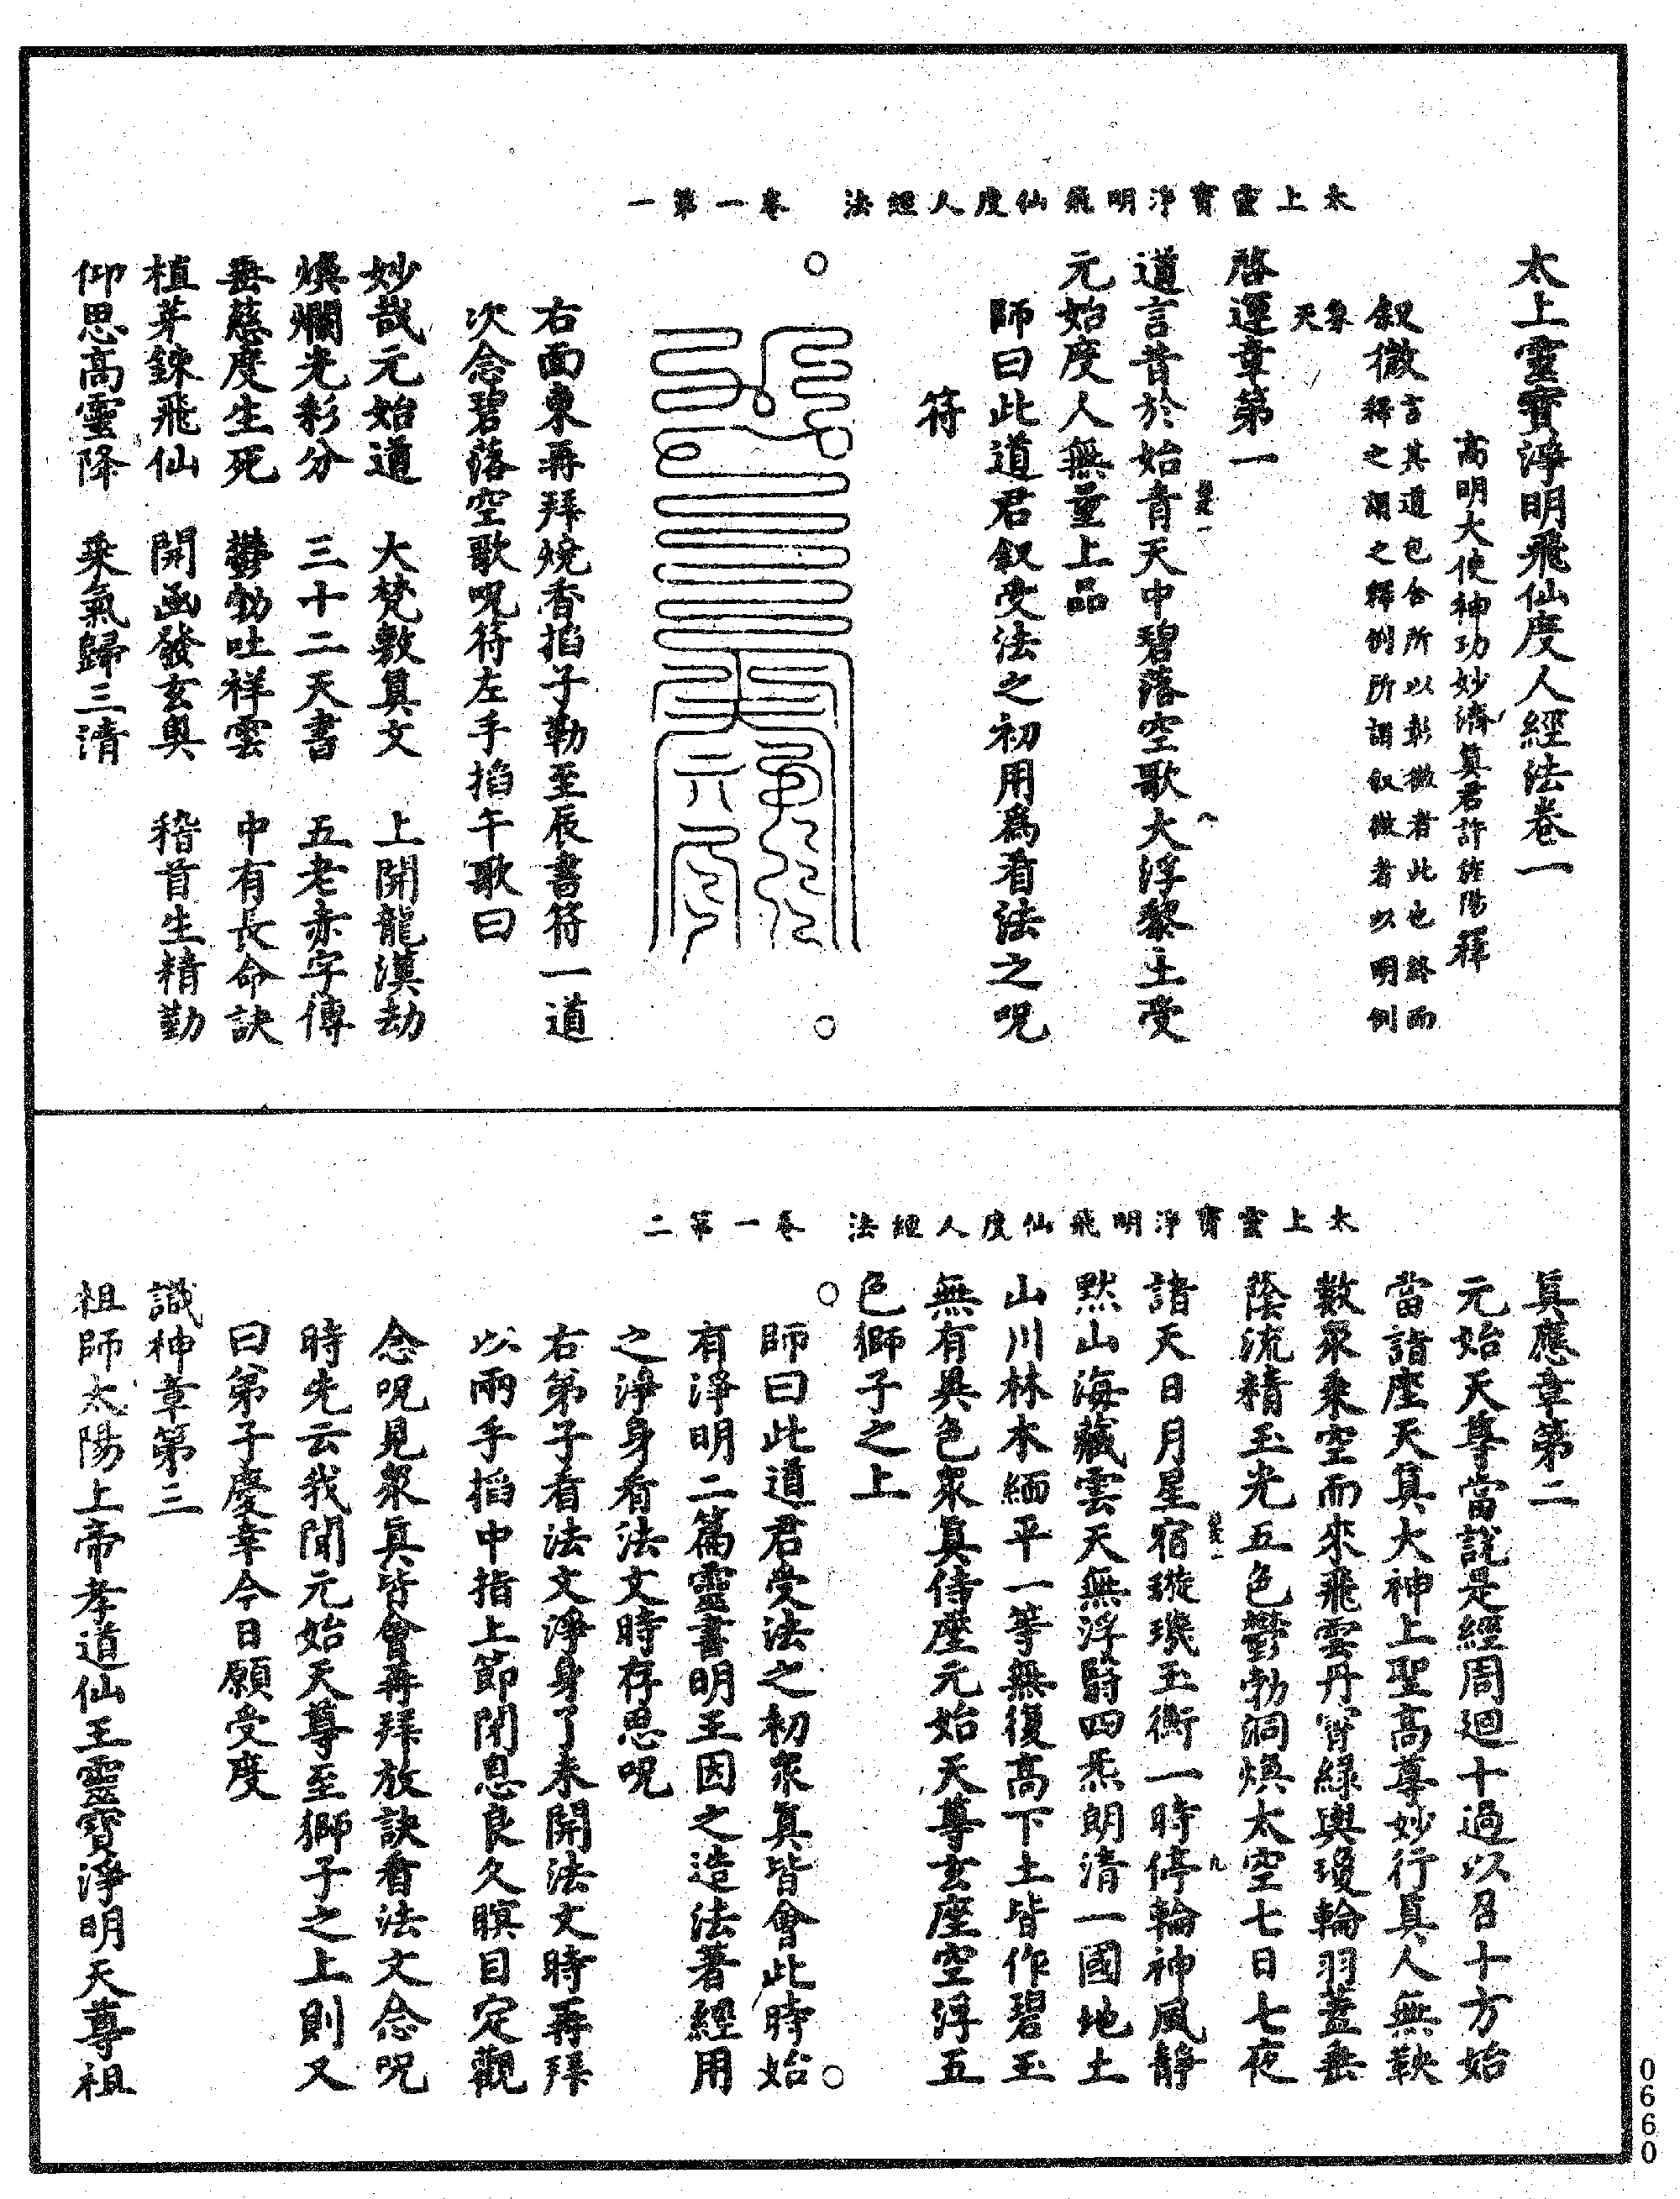 太上靈寶淨明飛仙度人經法 卷一 第一
太上靈寶淨明飛仙度人經法卷一
高明大使神功妙濟真君許旌陽釋
叙徹言其道包含所以彰徹者此也終而
釋之謂之釋例所謂叙徹者以明例
象天
啓運章第一
道言昔於始青天中碧落空歌大浮黎土受
元始度人無量上品
師曰此道君叙受法之初用為看法之呪
符
右面東再拜燒香掐子勒至辰書符一道
次念碧落空歌呪符左手掐午歌曰
妙哉元始道 大梵敷真文 上開龍漢劫
煥爛光彩分 三十二天書 五老赤字傳
垂慈度生死 鬱勃吐祥雲 中有長命訣
植芽鍊飛仙 開函發玄奥 稽首生精勤
仰思高靈降 乘氣歸三清
太上靈寶淨明飛仙度人經法 卷一 第二
真應章第二
元始天尊當說是經周迴十過以召十方始
當詣座天真大神上聖高尊妙行真人無鞅
數衆乘空而來飛雲丹霄綠輿瓊輪羽蓋垂
蔭流精玉光五色鬱勃洞煥太空七日七夜
諸天日月星宿璇璣玉衡一時停輪神風靜
默山海藏雲天無浮翳四炁朗清一國地土
山川林木緬平一等無復高下土皆作碧玉
無有異色衆真侍座元始天尊玄座空浮五
色獅子之上
師曰此道君受法之初衆真皆會此時始
有淨明二篇靈書明王因之造法著經用
之淨身看法文時存思呪
右弟子看法文淨身了來開法文時再拜
以兩手掐中指上節閉息良久瞑目定觀
念呪見衆真皆會再拜放訣看法文念呪
時先云我聞元始天尊至獅子之上則又
曰弟子慶幸今日願受度
識神章第三
祖師太陽上帝孝道仙王靈寶淨明天尊祖
0660